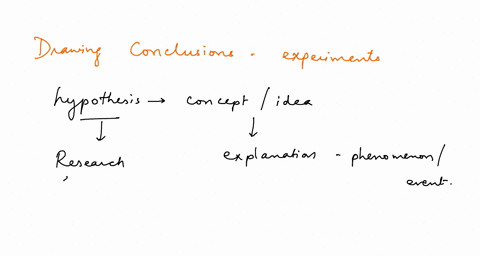 Drawing Conclusions - experiments
hypothesis → concept / idea
↓ ↓
Research explanation - phenomenon/
event.